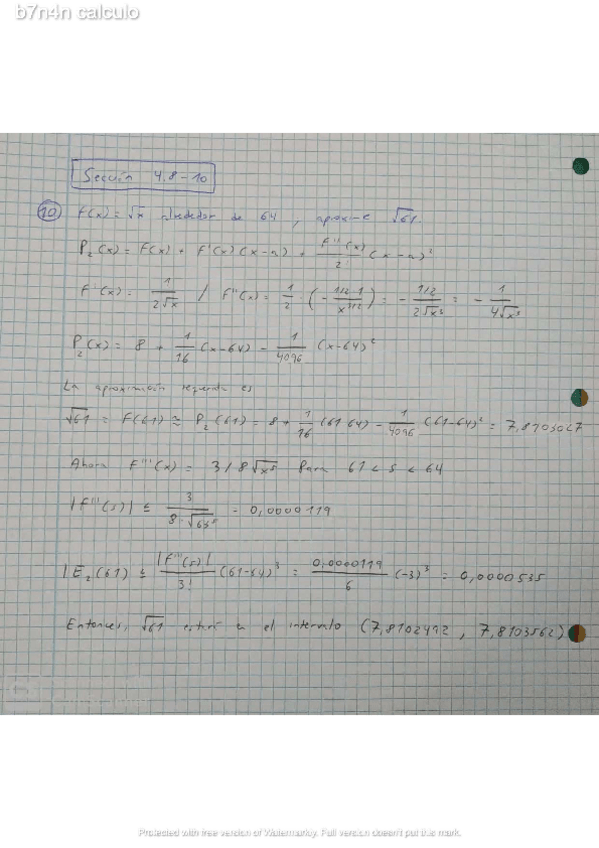 b7n4n calculo
Sección 4.8-10
10 F(x) = √x alrededor de 64, aproxime √61.
P₂(x) = F(x) + F'(x)(x-a) + F''(x)/2! (x-a)²
F'(x) = 1/2√x / F''(x) = 1/2 · (- 1/2·1/x^3/2) = - 1/2/2√x³ = - 1/4√x³
P₂(x) = 8 + 1/16 (x-64) - 1/4096 (x-64)²
La aproximación requerida es
√61 = F(61) ≅ P₂(61) = 8 + 1/16 (61-64) - 1/4096 (61-64)² = 7,8103027
Ahora F'''(x) = 3/8√x⁵ Para 61 < s < 64
|F'''(s)| ≤ 3/8·√ - 0,0000119
|E₂(61) ≤ |F'''(s)|/3! (61-64)³ = 0,0000119/6 (-3)³ = 0,0000535
Entonces, √61 en el intervalo (7,8102492, 7,8103562)
Protected with free version of Watermarkly. Full version doesn't put this mark.